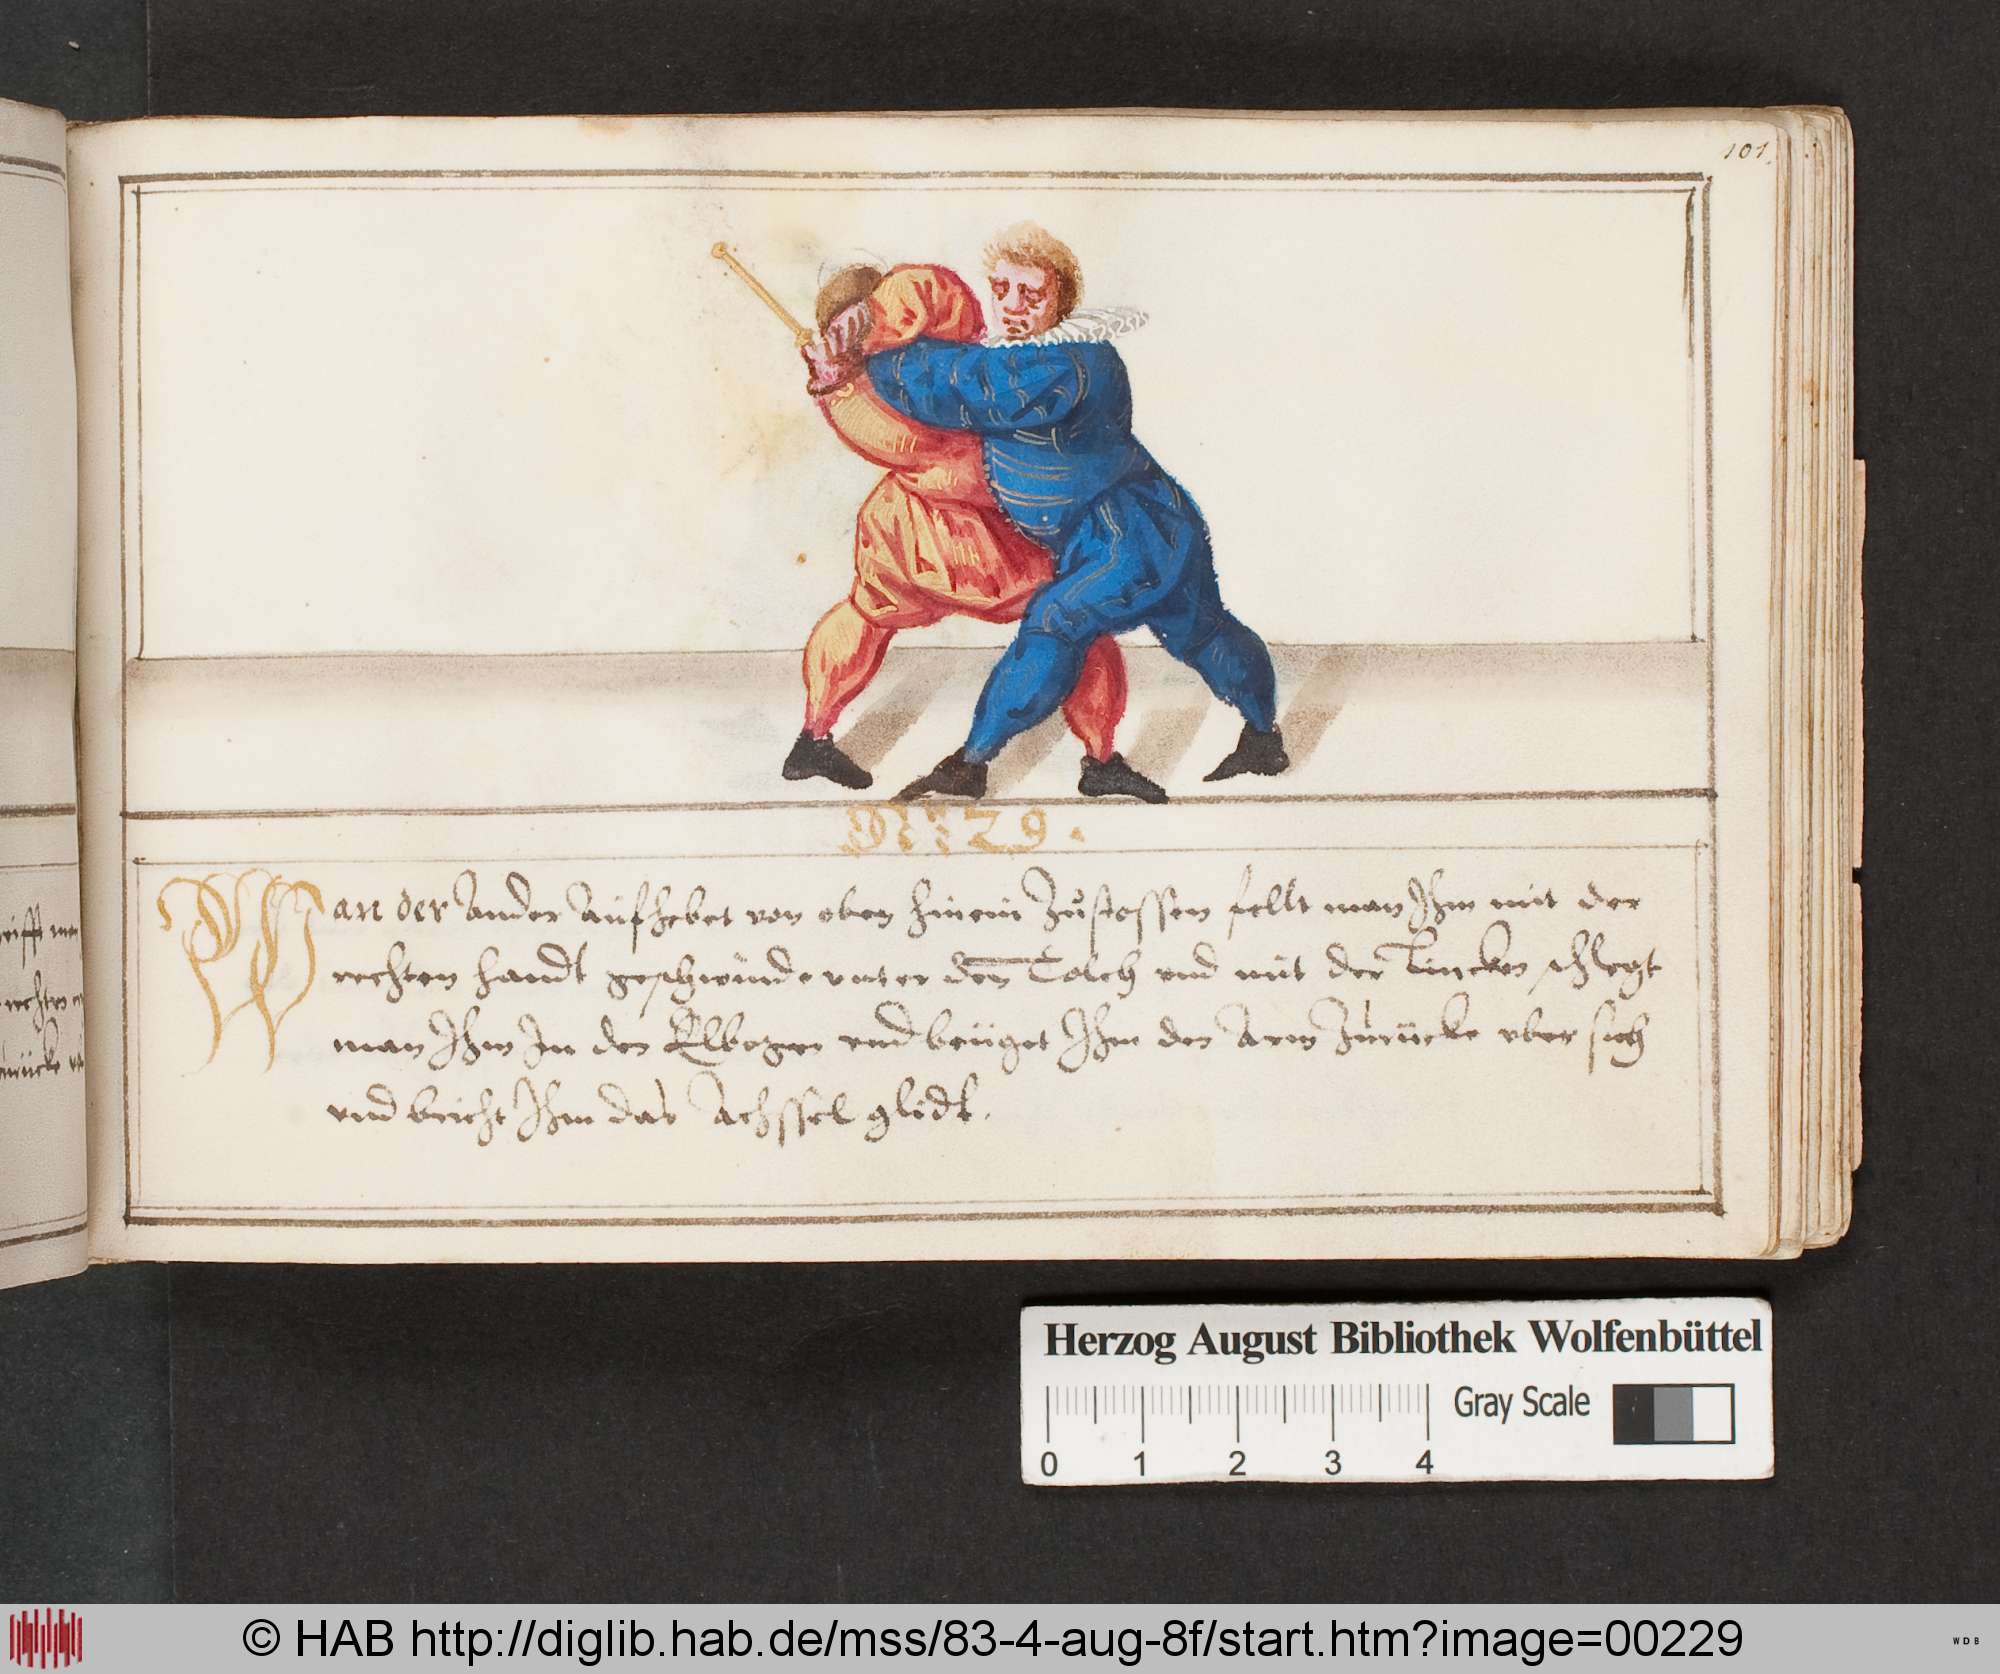 101.
Die 29.
Wan der Ander Aufhebet von oben hinein Zustossen fellt man Ihm mit der
rechten handt geschwinde vnter den Tolch vnd mit der Lincken schlegt
man Ihm In den Elbogen vnd beuget Ihm den Arm Zurücke vber sich
vnd bricht Ihm das Achssel glidt.
Herzog August Bibliothek Wolfenbüttel
Gray Scale
0 1 2 3 4
© HAB http://diglib.hab.de/mss/83-4-aug-8f/start.htm?image=00229
WDB